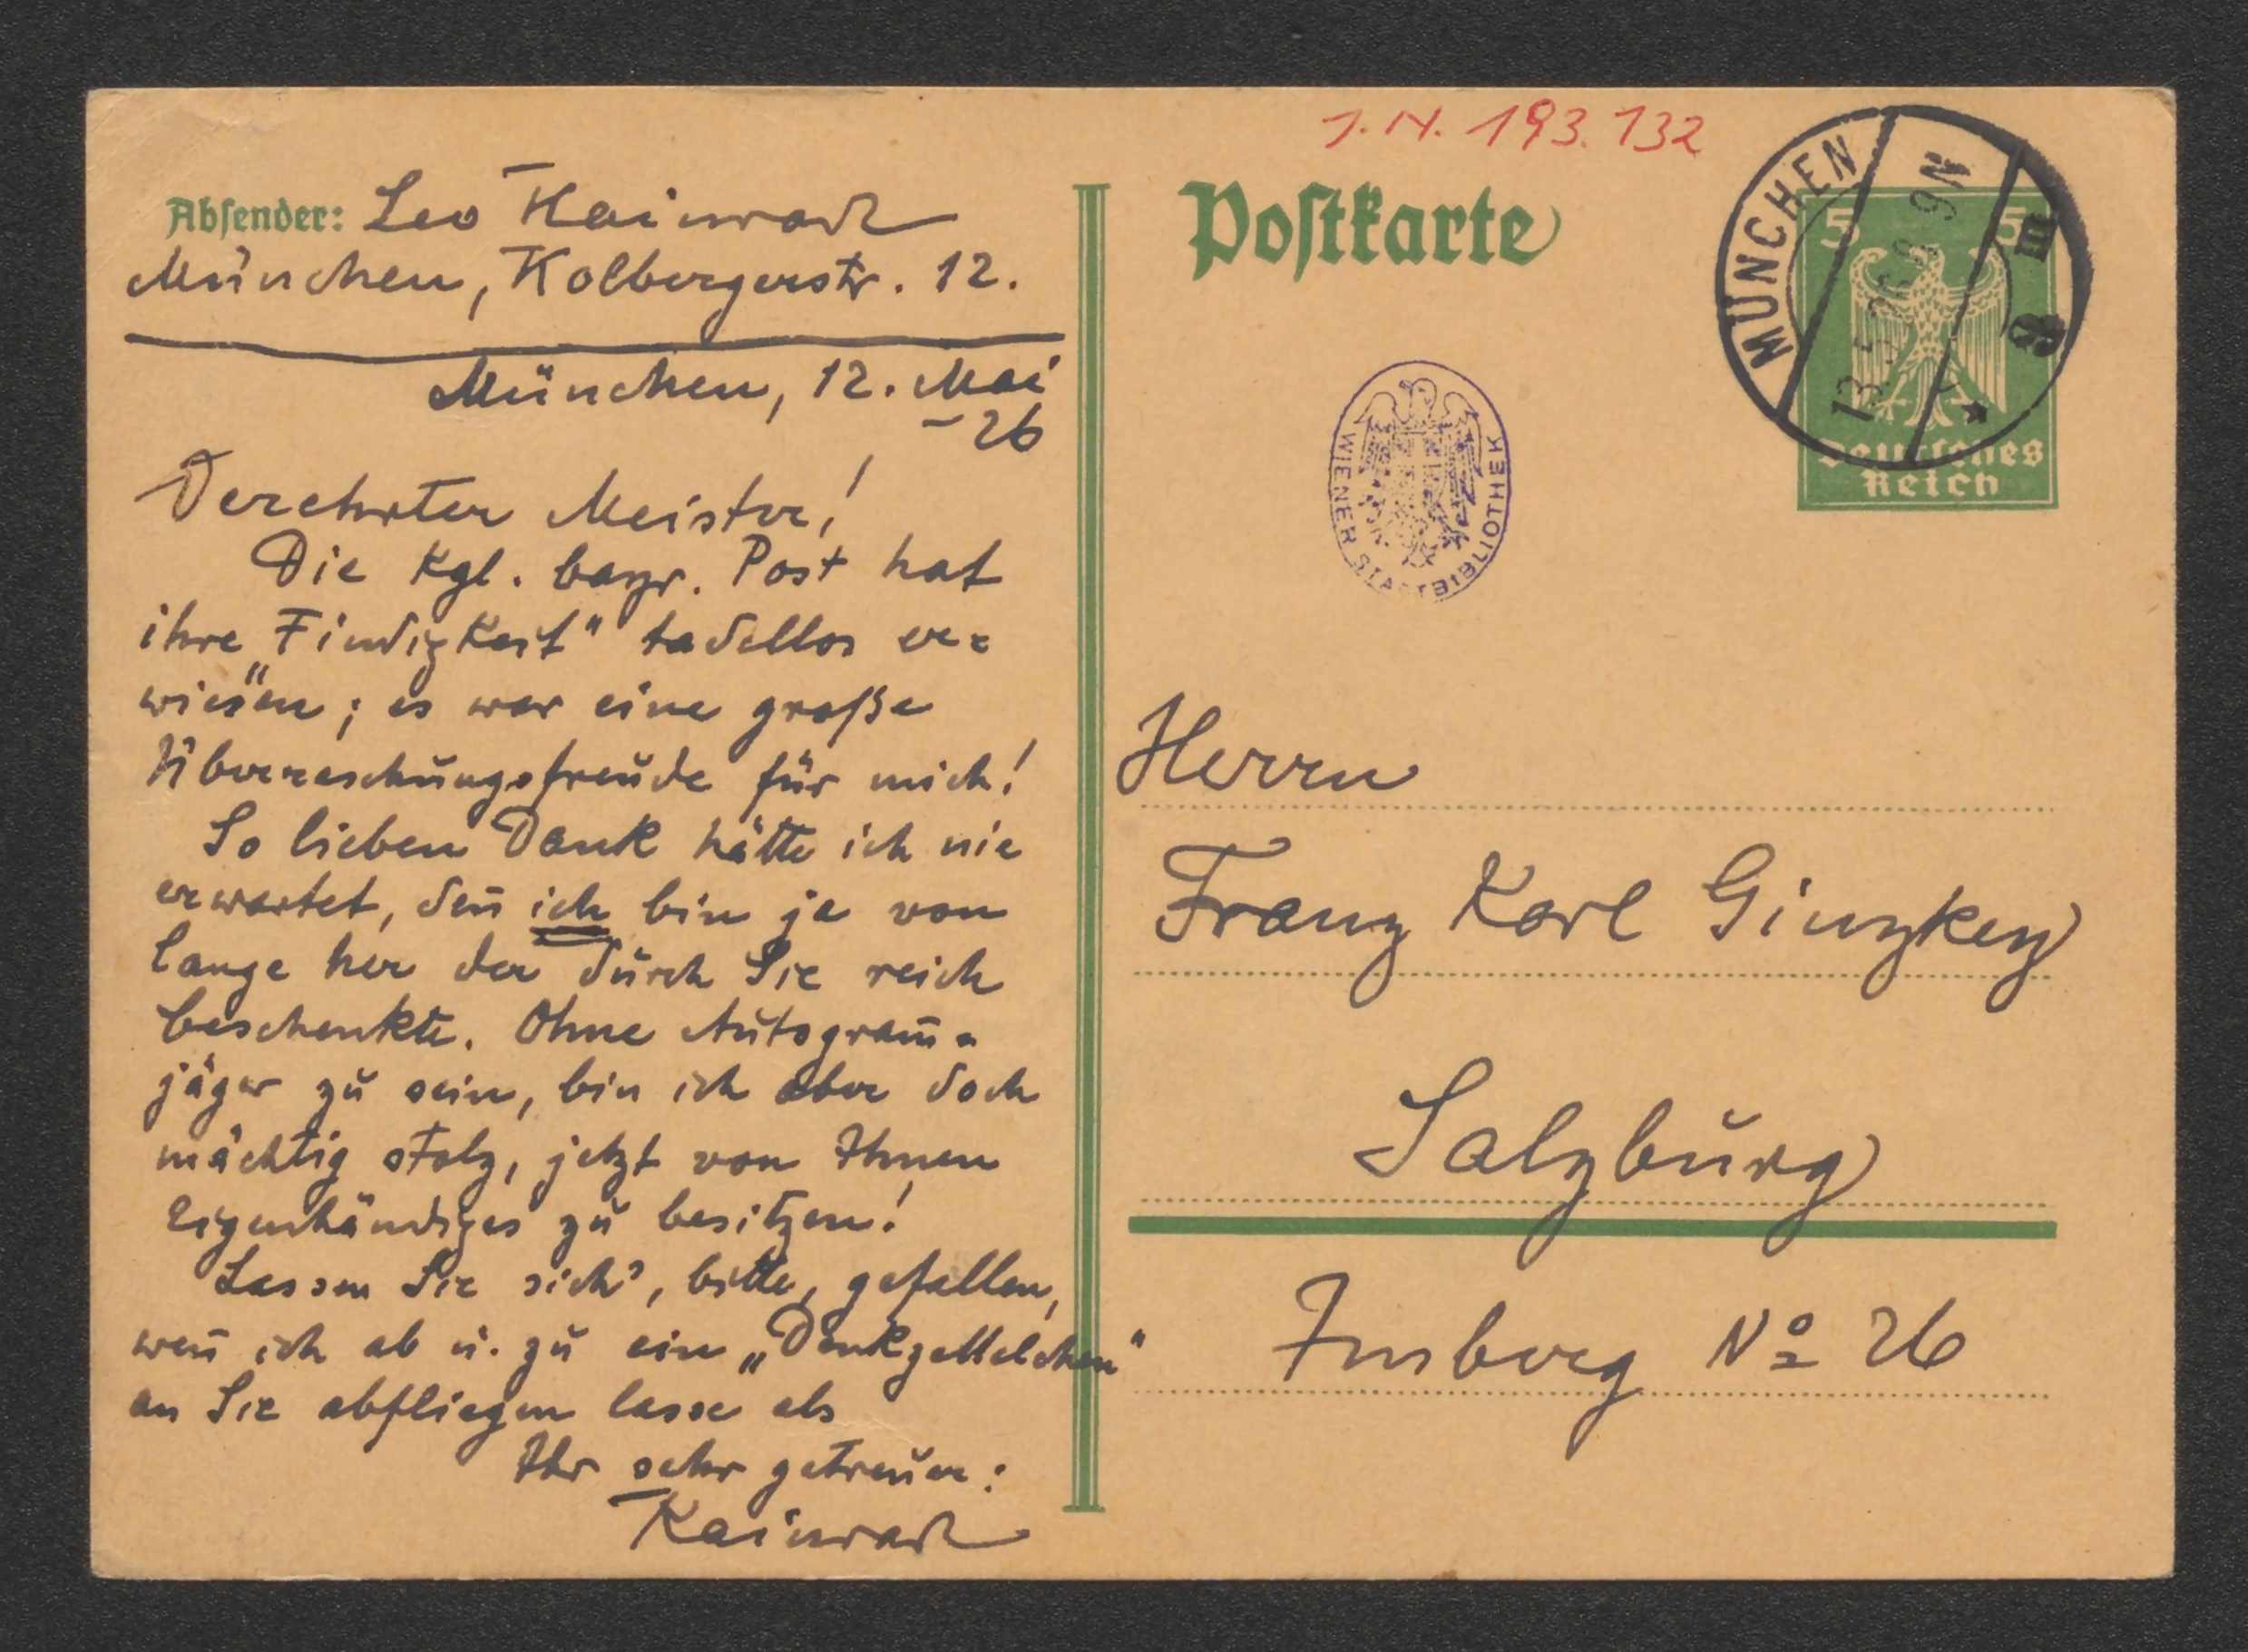 I.N. 193.132
Absender: Leo Kainrad
München, Kolbergerstr. 12.
München, 12. Mai
-26
Verehrter Meister!
Die kgl. bayr. Post hat
ihre „Findigkeit" tadellos er=
wiesen; es war eine große
Überraschungsfreude für mich!
So lieben Dank hätte ich nie
erwartet, den̄ ich bin ja von
lange her der durch Sie reich
beschenkte. Ohne Autogram̄=
jäger zu sein, bin ich aber doch
mächtig stolz, jetzt von Ihnen
Eigenhändiges zu besitzen!
Lassen Sie sich's, bitte, gefallen,
wen̄ ich ab u. zu ein „Denkzettelchen"
an Sie abfliegen lasse als
Ihr sehr getreuer:
Kainrad
Postkarte
MÜNCHEN
13.5.26. 8-9N
5 5
Deutsches
Reich
WIENER STADTBIBLIOTHEK
Herrn
Franz Karl Ginzkey
Salzburg
Imberg No 26